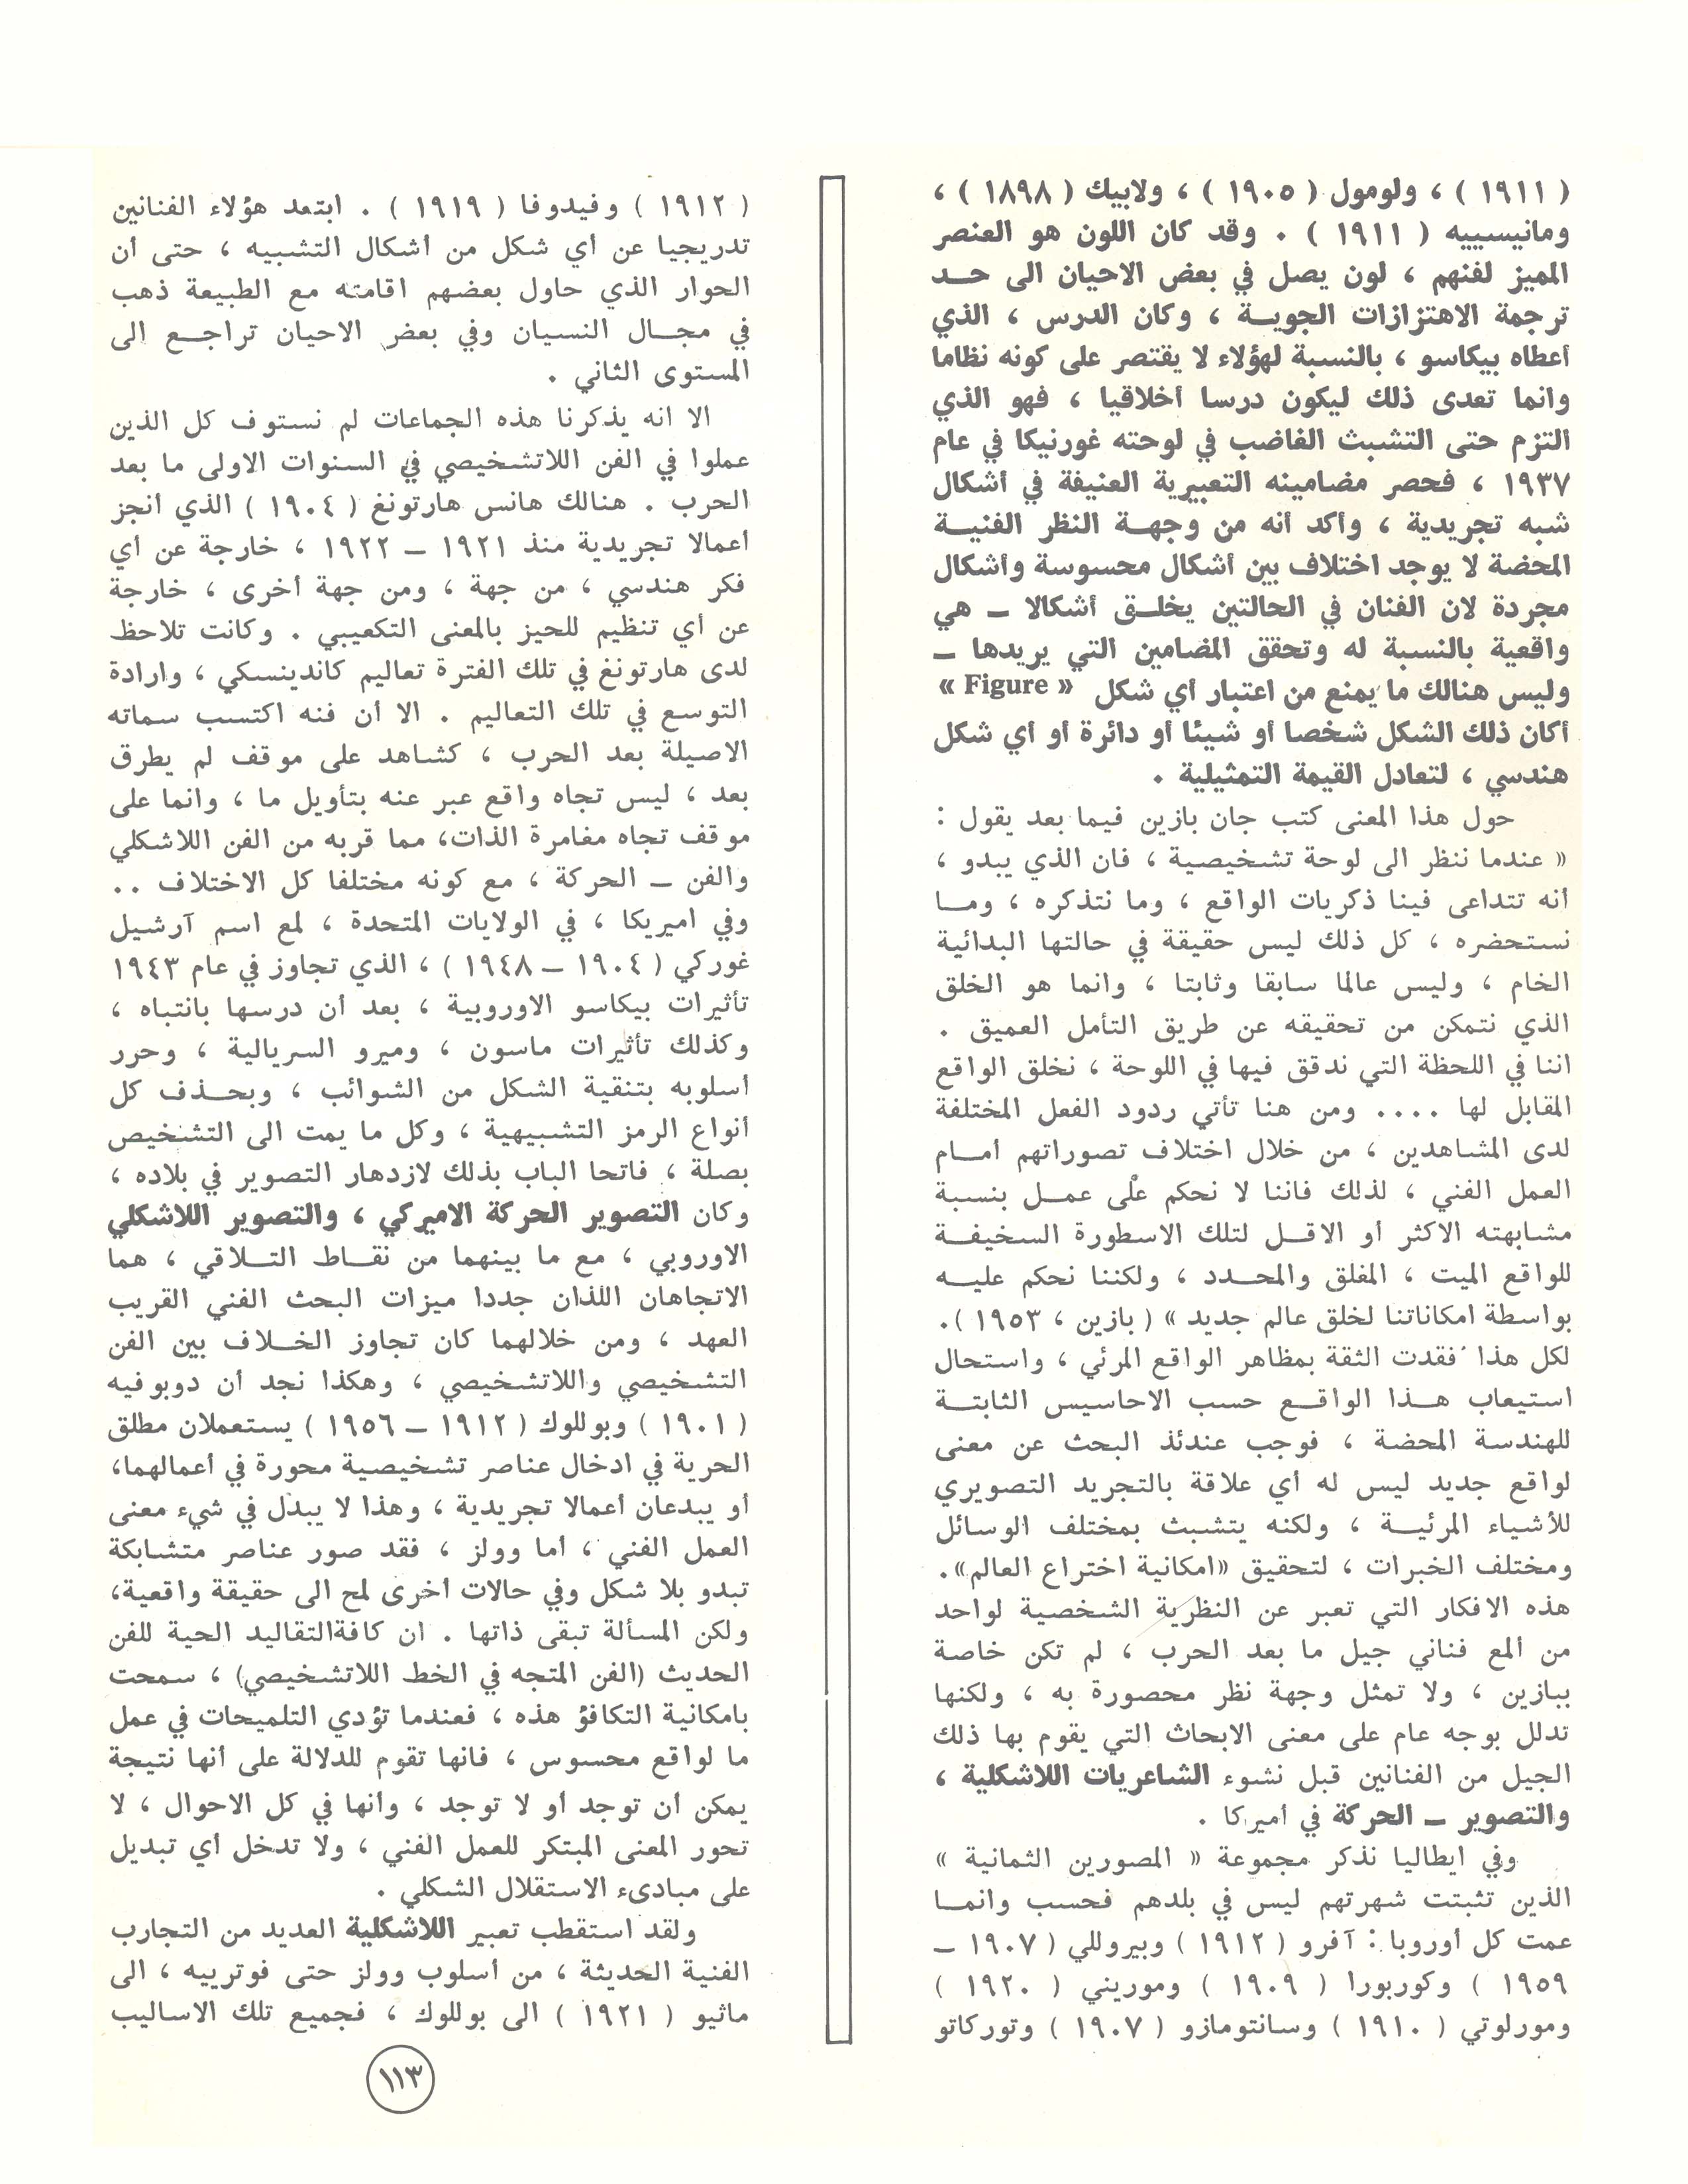 ( ١٩١١ ) ، ولومول ( ١٩٠٥ ) ، ولابيك ( ١٨٩٨ ) ،
ومانيسييه ( ١٩١١ ) . وقد كان اللون هو العنصر
المميز لفنهم ، لون يصل في بعض الاحيان الى حد
ترجمة الاهتزازات الجوية ، وكان الدرس ، الذي
أعطاه بيكاسو ، بالنسبة لهؤلاء لا يقتصر على كونه نظاما
وانما تعدى ذلك ليكون درسا أخلاقيا ، فهو الذي
التزم حتى التشبث الغاضب في لوحته غورنيكا في عام
١٩٣٧ ، فحصر مضامينه التعبيرية العنيفة في أشكال
شبه تجريدية ، وأكد أنه من وجهة النظر الفنية
المحضة لا يوجد اختلاف بين أشكال محسوسة وأشكال
مجردة لان الفنان في الحالتين يخلق أشكالا – هي
واقعية بالنسبة له وتحقق المضامين التي يريدها –
وليس هنالك ما يمنع من اعتبار أي شكل « Figure »
أكان ذلك الشكل شخصا أو شيئا أو دائرة أو أي شكل
هندسي ، لتعادل القيمة التمثيلية .
حول هذا المعنى كتب جان بازين فيما بعد يقول :
« عندما ننظر الى لوحة تشخيصية ، فان الذي يبدو ،
أنه تتداعى فينا ذكريات الواقع ، وما نتذكره ، وما
نستحضره ، كل ذلك ليس حقيقة في حالتها البدائية
الخام ، وليس عالما سابقا وثابتا ، وانما هو الخلق
الذي نتمكن من تحقيقه عن طريق التأمل العميق .
اننا في اللحظة التي ندقق فيها في اللوحة ، نخلق الواقع
المقابل لها .... ومن هنا تأتي ردود الفعل المختلفة
لدى المشاهدين ، من خلال اختلاف تصوراتهم أمام
العمل الفني ، لذلك فاننا لا نحكم على عمل بنسبة
مشابهته الاكثر أو الاقل لتلك الاسطورة السخيفة
للواقع الميت ، المغلق والمحدد ، ولكننا نحكم عليه
بواسطة امكاناتنا لخلق عالم جديد » ( بازين ، ١٩٥٣ ).
لكل هذا فقدت الثقة بمظاهر الواقع المرئي ، واستحال
استيعاب هذا الواقع حسب الاحاسيس الثابتة
للهندسة المحضة ، فوجب عندئذ البحث عن معنى
لواقع جديد ليس له أي علاقة بالتجريد التصويري
للأشياء المرئية ، ولكنه يتشبث بمختلف الوسائل
ومختلف الخبرات ، لتحقيق «امكانية اختراع العالم».
هذه الافكار التي تعبر عن النظرية الشخصية لواحد
من ألمع فناني جيل ما بعد الحرب ، لم تكن خاصة
ببازين ، ولا تمثل وجهة نظر محصورة به ، ولكنها
تدلل بوجه عام على معنى الابحاث التي يقوم بها ذلك
الجيل من الفنانين قبل نشوء الشاعريات اللاشكلية ،
والتصوير – الحركة في أميركا .
وفي ايطاليا نذكر مجموعة « المصورين الثمانية »
الذين تثبتت شهرتهم ليس في بلدهم فحسب وانما
عمت كل أوروبا : آفرو ( ١٩١٢ ) وبيروللي ( ١٩٠٧ –
١٩٥٩ ) وكوربورا ( ١٩٠٩ ) وموريني ( ١٩٢٠ )
ومورلوتي ( ١٩١٠ ) وسانتومازو ( ١٩٠٧ ) وتوركاتو
( ١٩١٢ ) وفيدوفا ( ١٩١٩ ) . ابتعد هؤلاء الفنانين
تدريجيا عن أي شكل من أشكال التشبيه ، حتى أن
الحوار الذي حاول بعضهم اقامته مع الطبيعة ذهب
في مجال النسيان وفي بعض الاحيان تراجع الى
المستوى الثاني .
الا انه يذكرنا هذه الجماعات لم نستوف كل الذين
عملوا في الفن اللاتشخيصي في السنوات الاولى ما بعد
الحرب . هنالك هانس هارتونغ ( ١٩٠٤ ) الذي أنجز
أعمالا تجريدية منذ ١٩٢١ – ١٩٢٢ ، خارجة عن أي
فكر هندسي ، من جهة ، ومن جهة أخرى ، خارجة
عن أي تنظيم للحيز بالمعنى التكعيبي . وكانت تلاحظ
لدى هارتونغ في تلك الفترة تعاليم كاندينسكي ، وارادة
التوسع في تلك التعاليم . الا أن فنه اكتسب سماته
الاصيلة بعد الحرب ، كشاهد على موقف لم يطرق
بعد ، ليس تجاه واقع عبر عنه بتأويل ما ، وانما على
موقف تجاه مغامرة الذات، مما قربه من الفن اللاشكلي
والفن – الحركة ، مع كونه مختلفا كل الاختلاف ..
وفي اميريكا ، في الولايات المتحدة ، لمع اسم آرشيل
غوركي ( ١٩٠٤ – ١٩٤٨ ) ، الذي تجاوز في عام ١٩٤٣
تأثيرات بيكاسو الاوروبية ، بعد أن درسها بانتباه ،
وكذلك تأثيرات ماسون ، وميرو السريالية ، وحرر
أسلوبه بتنقية الشكل من الشوائب ، وبحذف كل
أنواع الرمز التشبيهية ، وكل ما يمت الى التشخيص
بصلة ، فاتحا الباب بذلك لازدهار التصوير في بلاده ،
وكان التصوير الحركة الاميركي ، والتصوير اللاشكلي
الاوروبي ، مع ما بينهما من نقاط التلاقي ، هما
الاتجاهان اللذان جددا ميزات البحث الفني القريب
العهد ، ومن خلالهما كان تجاوز الخلاف بين الفن
التشخيصي واللاتشخيصي ، وهكذا نجد أن دوبوفيه
( ١٩٠١ ) وبوللوك ( ١٩١٢ – ١٩٥٦ ) يستعملان مطلق
الحرية في ادخال عناصر تشخيصية محورة في أعمالهما،
أو يبدعان أعمالا تجريدية ، وهذا لا يبدل في شيء معنى
العمل الفني ، أما وولز ، فقد صور عناصر متشابكة
تبدو بلا شكل وفي حالات أخرى لمح الى حقيقة واقعية،
ولكن المسألة تبقى ذاتها . ان كافةالتقاليد الحية للفن
الحديث (الفن المتجه في الخط اللاتشخيصي) ، سمحت
بامكانية التكافؤ هذه ، فعندما تؤدي التلميحات في عمل
ما لواقع محسوس ، فانها تقوم للدلالة على أنها نتيجة
يمكن أن توجد أو لا توجد ، وأنها في كل الاحوال ، لا
تحور المعنى المبتكر للعمل الفني ، ولا تدخل أي تبديل
على مبادىء الاستقلال الشكلي .
ولقد استقطب تعبير اللاشكلية العديد من التجارب
الفنية الحديثة ، من أسلوب وولز حتى فوترييه ، الى
ماثيو ( ١٩٢١ ) الى بوللوك ، فجميع تلك الاساليب
١١٣